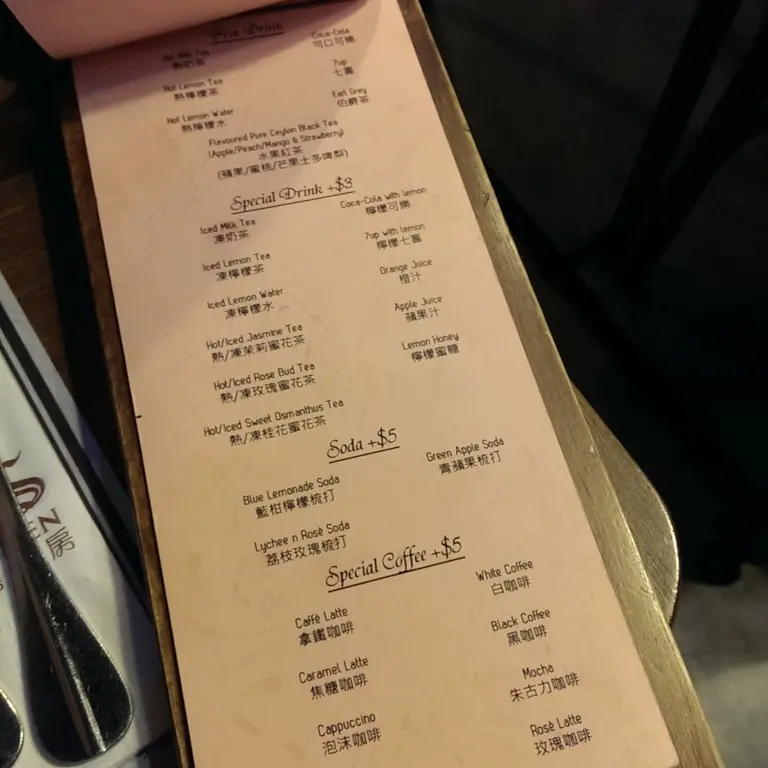 Drink
Hot Milk Tea
熱奶茶
Coca-Cola
可口可樂
Hot Lemon Tea
熱檸檬茶
7up
七喜
Hot Lemon Water
熱檸檬水
Earl Grey
伯爵茶
Flavoured Pure Ceylon Black Tea
(Apple/Peach/Mango & Strawberry)
水果紅茶
(蘋果/蜜桃/芒果士多啤梨)
Special Drink +$3
Iced Milk Tea
凍奶茶
Coca-Cola with lemon
檸檬可樂
Iced Lemon Tea
凍檸檬茶
7up with lemon
檸檬七喜
Iced Lemon Water
凍檸檬水
Orange Juice
橙汁
Hot/Iced Jasmine Tea
熱/凍茉莉蜜花茶
Apple Juice
蘋果汁
Hot/Iced Rose Bud Tea
熱/凍玫瑰蜜花茶
Lemon Honey
檸檬蜜糖
Hot/Iced Sweet Osmanthus Tea
熱/凍桂花蜜花茶
Soda +$5
Blue Lemonade Soda
藍柑檸檬梳打
Green Apple Soda
青蘋果梳打
Lychee n Rosè Soda
荔枝玫瑰梳打
Special Coffee +$5
Caffè Latte
拿鐵咖啡
White Coffee
白咖啡
Caramel Latte
焦糖咖啡
Black Coffee
黑咖啡
Cappuccino
泡沫咖啡
Mocha
朱古力咖啡
Rosè Latte
玫瑰咖啡
房